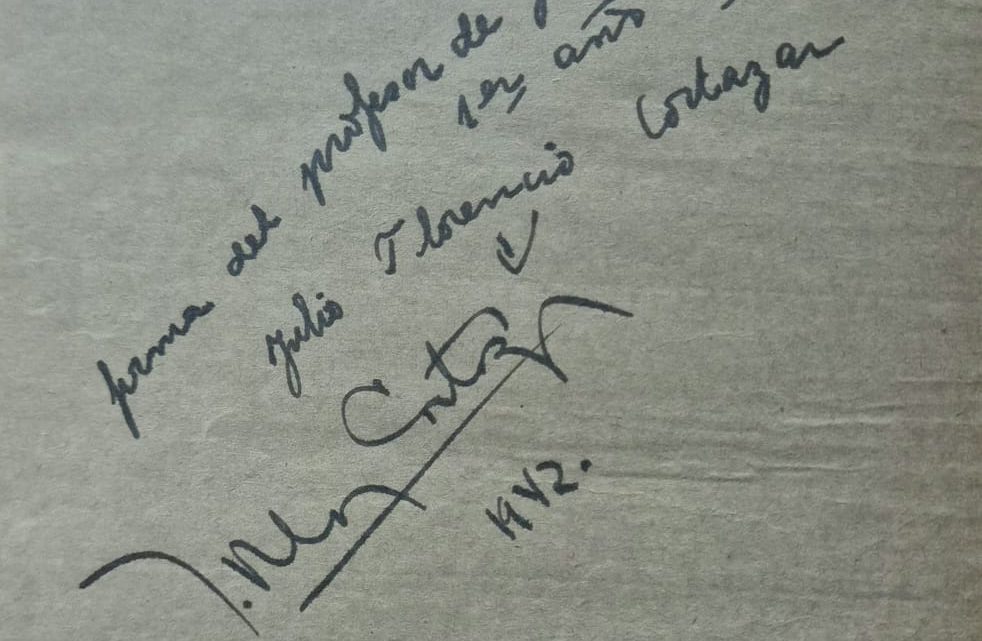 firma del profesor de
1er año
Julio Florencio Cortazar
1942.